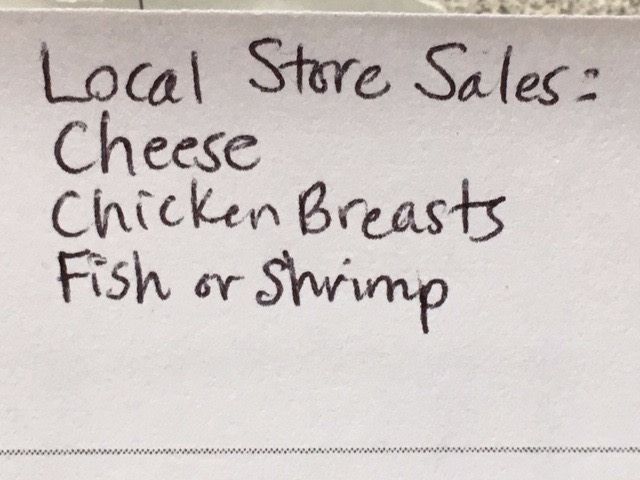 Local Store Sales:
Cheese
Chicken Breasts
Fish or Shrimp